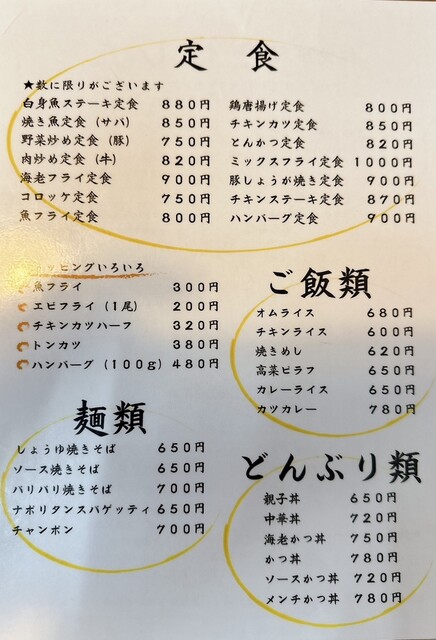 定食
★数に限りがございます
白身魚ステーキ定食 880円
焼き魚定食（サバ） 850円
野菜炒め定食（豚） 750円
肉炒め定食（牛） 820円
海老フライ定食 900円
コロッケ定食 750円
魚フライ定食 800円
鶏唐揚げ定食 800円
チキンカツ定食 850円
とんかつ定食 820円
ミックスフライ定食 1000円
豚しょうが焼き定食 900円
チキンステーキ定食 870円
ハンバーグ定食 900円
ッピングいろいろ
魚フライ 300円
エビフライ（1尾） 200円
チキンカツハーフ 320円
トンカツ 380円
ハンバーグ（100ｇ） 480円
ご飯類
オムライス 680円
チキンライス 600円
焼きめし 620円
高菜ピラフ 650円
カレーライス 650円
カツカレー 780円
麺類
しょうゆ焼きそば 650円
ソース焼きそば 650円
パリパリ焼きそば 700円
ナポリタンスパゲッティ 650円
チャンポン 700円
どんぶり類
親子丼 650円
中華丼 720円
海老かつ丼 750円
かつ丼 780円
ソースかつ丼 720円
メンチかつ丼 780円